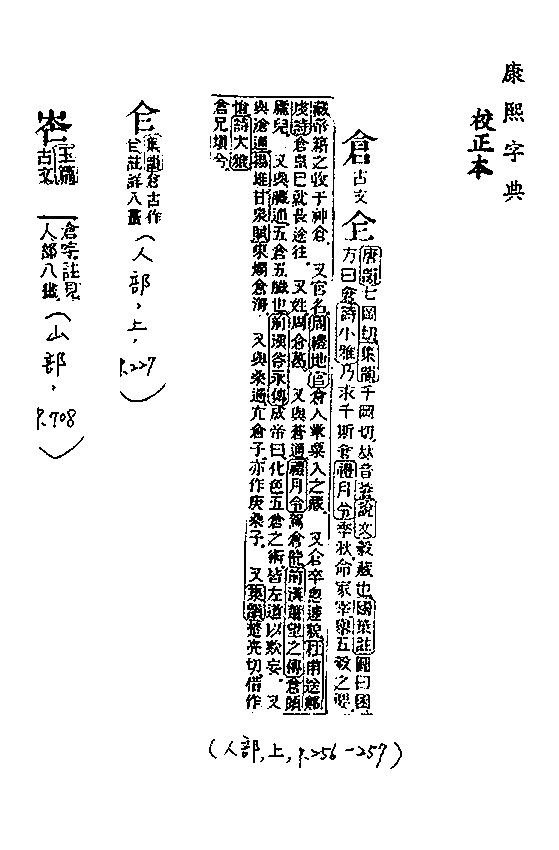 康熙字典
校正本
倉 古文 仺
唐韻七岡切集韻千岡切𠀤音蒼說文穀藏也國策註圓曰囷
方曰倉詩小雅乃求千斯倉禮月令季秋命冢宰舉五穀之要
藏帝籍之收于神倉 又官名周禮地官倉人掌粟入之藏 又倉卒怱遽貌杜甫送鄭
虔詩倉皇已就長途往 又姓周倉葛 又與蒼通禮月令駕倉龍前漢蕭望之傳倉頭
廬兒 又與臟通五倉五臟也前漢谷永傳成帝曰化色五倉之術皆左道以欺妄 又
與滄通揚雄甘泉賦東燭倉海 又與桑通亢倉子亦作庚桑子 又集韻楚亮切借作
愴詩大雅
倉兄塡兮
(人部,上,P.256-257)
仺 集韻倉古作
仺註詳八畫
(人部,上,P.227)
玉篇
古文
倉字註見
人部八畫
(山部,P.708)